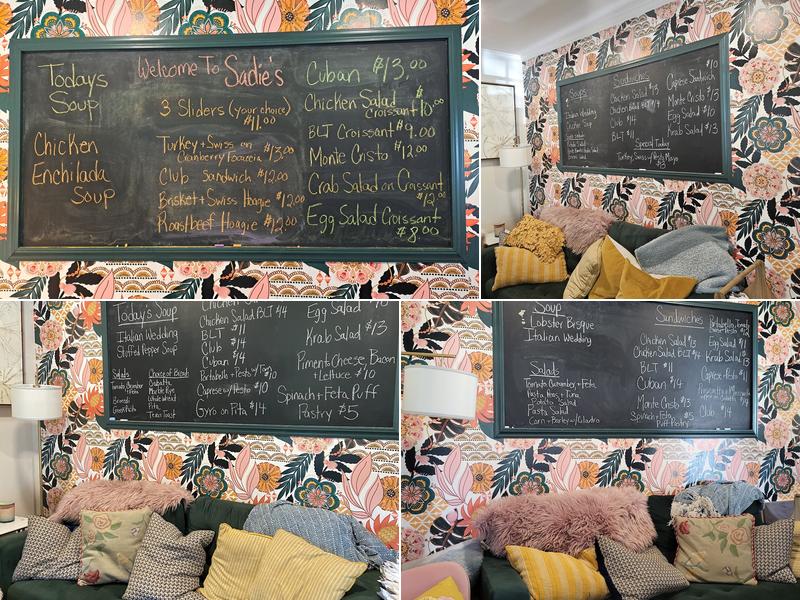 Todays
Soup
Chicken
Enchilada
Soup
Welcome To Sadie's
3 Sliders (your choice)
$11.00
Turkey + Swiss on
Cranberry Focaccia $13.00
Club Sandwich $12.00
Brisket + Swiss Hoagie $12.00
Roastbeef Hoagie $12.00
Cuban $13.00
Chicken Salad
Croissant $10.00
BLT Croissant $9.00
Monte Cristo $12.00
Crab Salad on Croissant
$12.00
Egg Salad Croissant
$8.00
Soups
Italian Wedding
Chicken Soup
Sandwiches
Chicken Salad $13
Chicken Salad BLT $14
Club $14
BLT $11
Special Today
Turkey, Swiss w/Pesto Mayo
$13
$10
Caprese Sandwich
Monte Cristo $13
Egg Salad $10
Krab Salad $13
Today's Soup
Italian Wedding
Stuffed Pepper Soup
Salads
Tomato, Cucumber
+ Feta
Broccoli
Greek Pasta
Choice of Bread
Ciabatta
Marble Rye
Whole Wheat
Pita
Texas Toast
Chicken
Chicken Salad BLT $14
BLT $11
Club $14
Cuban $14
Portabella + Pesto
Caprese w/Pesto $10
Gyro on Pita $14
Egg Salad
Krab Salad $13
Pimento Cheese, Bacon
+ Lettuce $10
Spinach + Feta Puff
Pastry $5
Soup
Lobster Bisque
Italian Wedding
Salads
Tomato Cucumber + Feta
Pasta Peas + Tuna
Potato Salad
Pasta Salad
Corn + Barley w/Cilantro
Sandwiches
Chicken Salad $13
Chicken Salad BLT $14
BLT $11
Cuban $14
Monte Cristo $13
Spinach + Feta $5
Puff Pastry
Egg Salad
Krab Salad
Club $14